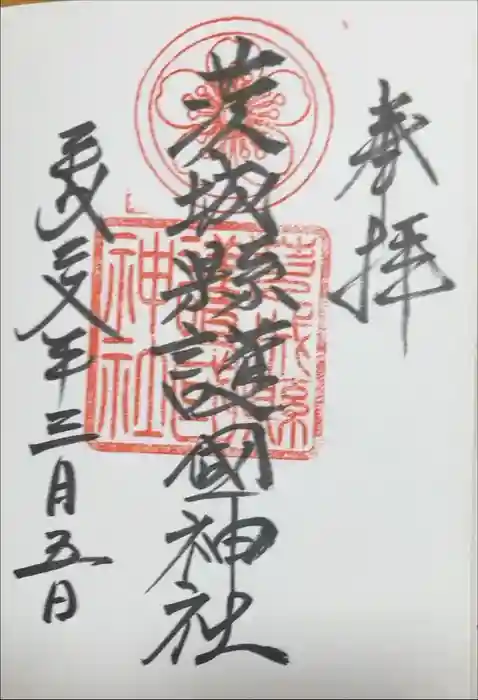 奉拝
茨城縣護國神社
平成二八年三月五日
茨城縣
護國
神社